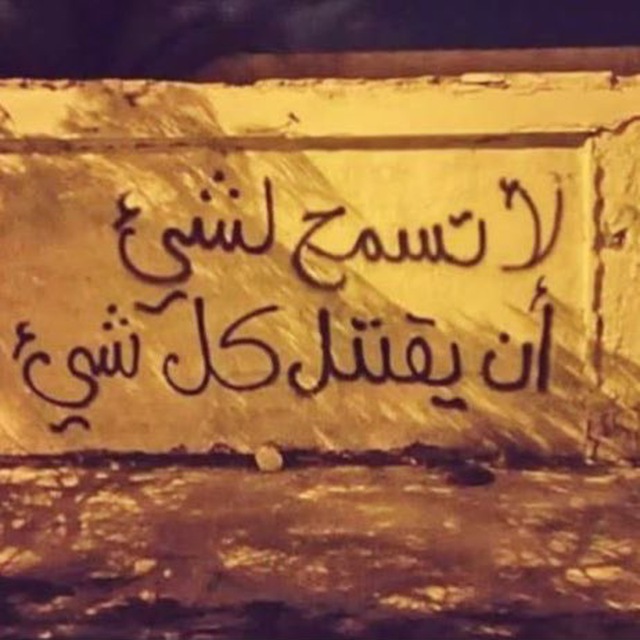 لا تسمح لشيئ
أن يقتل كل شيئ